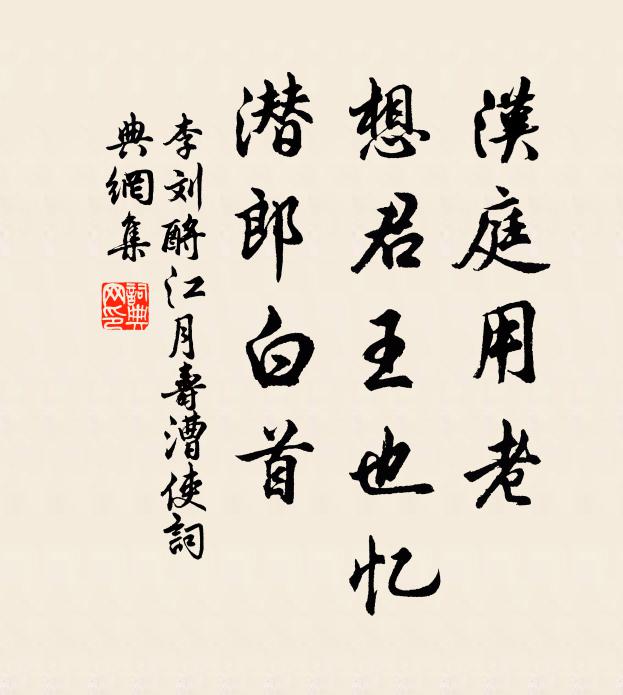 漢庭用老
想君王也忆
潜郎白首
李刘酹江月壽漕使詞
典網集
詞典网印